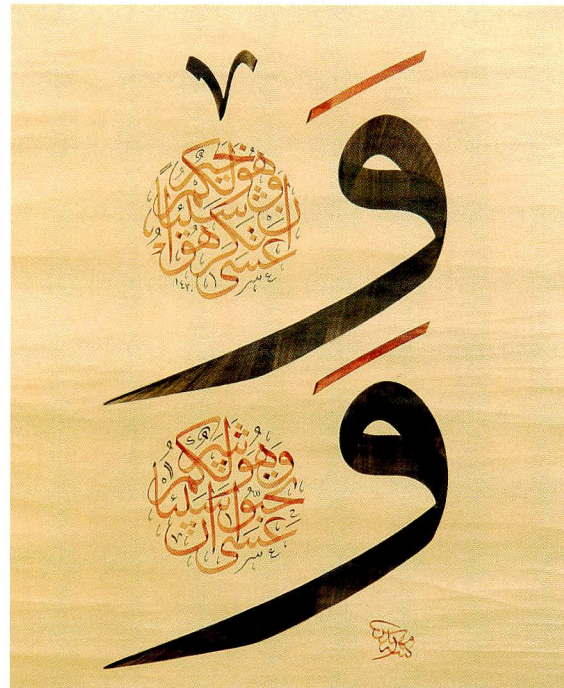 وَ
عسى ان تكرهوا شيئا وهو خير لكم
١٤٢٠
وَ
عسى ان تحبوا شيئا وهو شر لكم